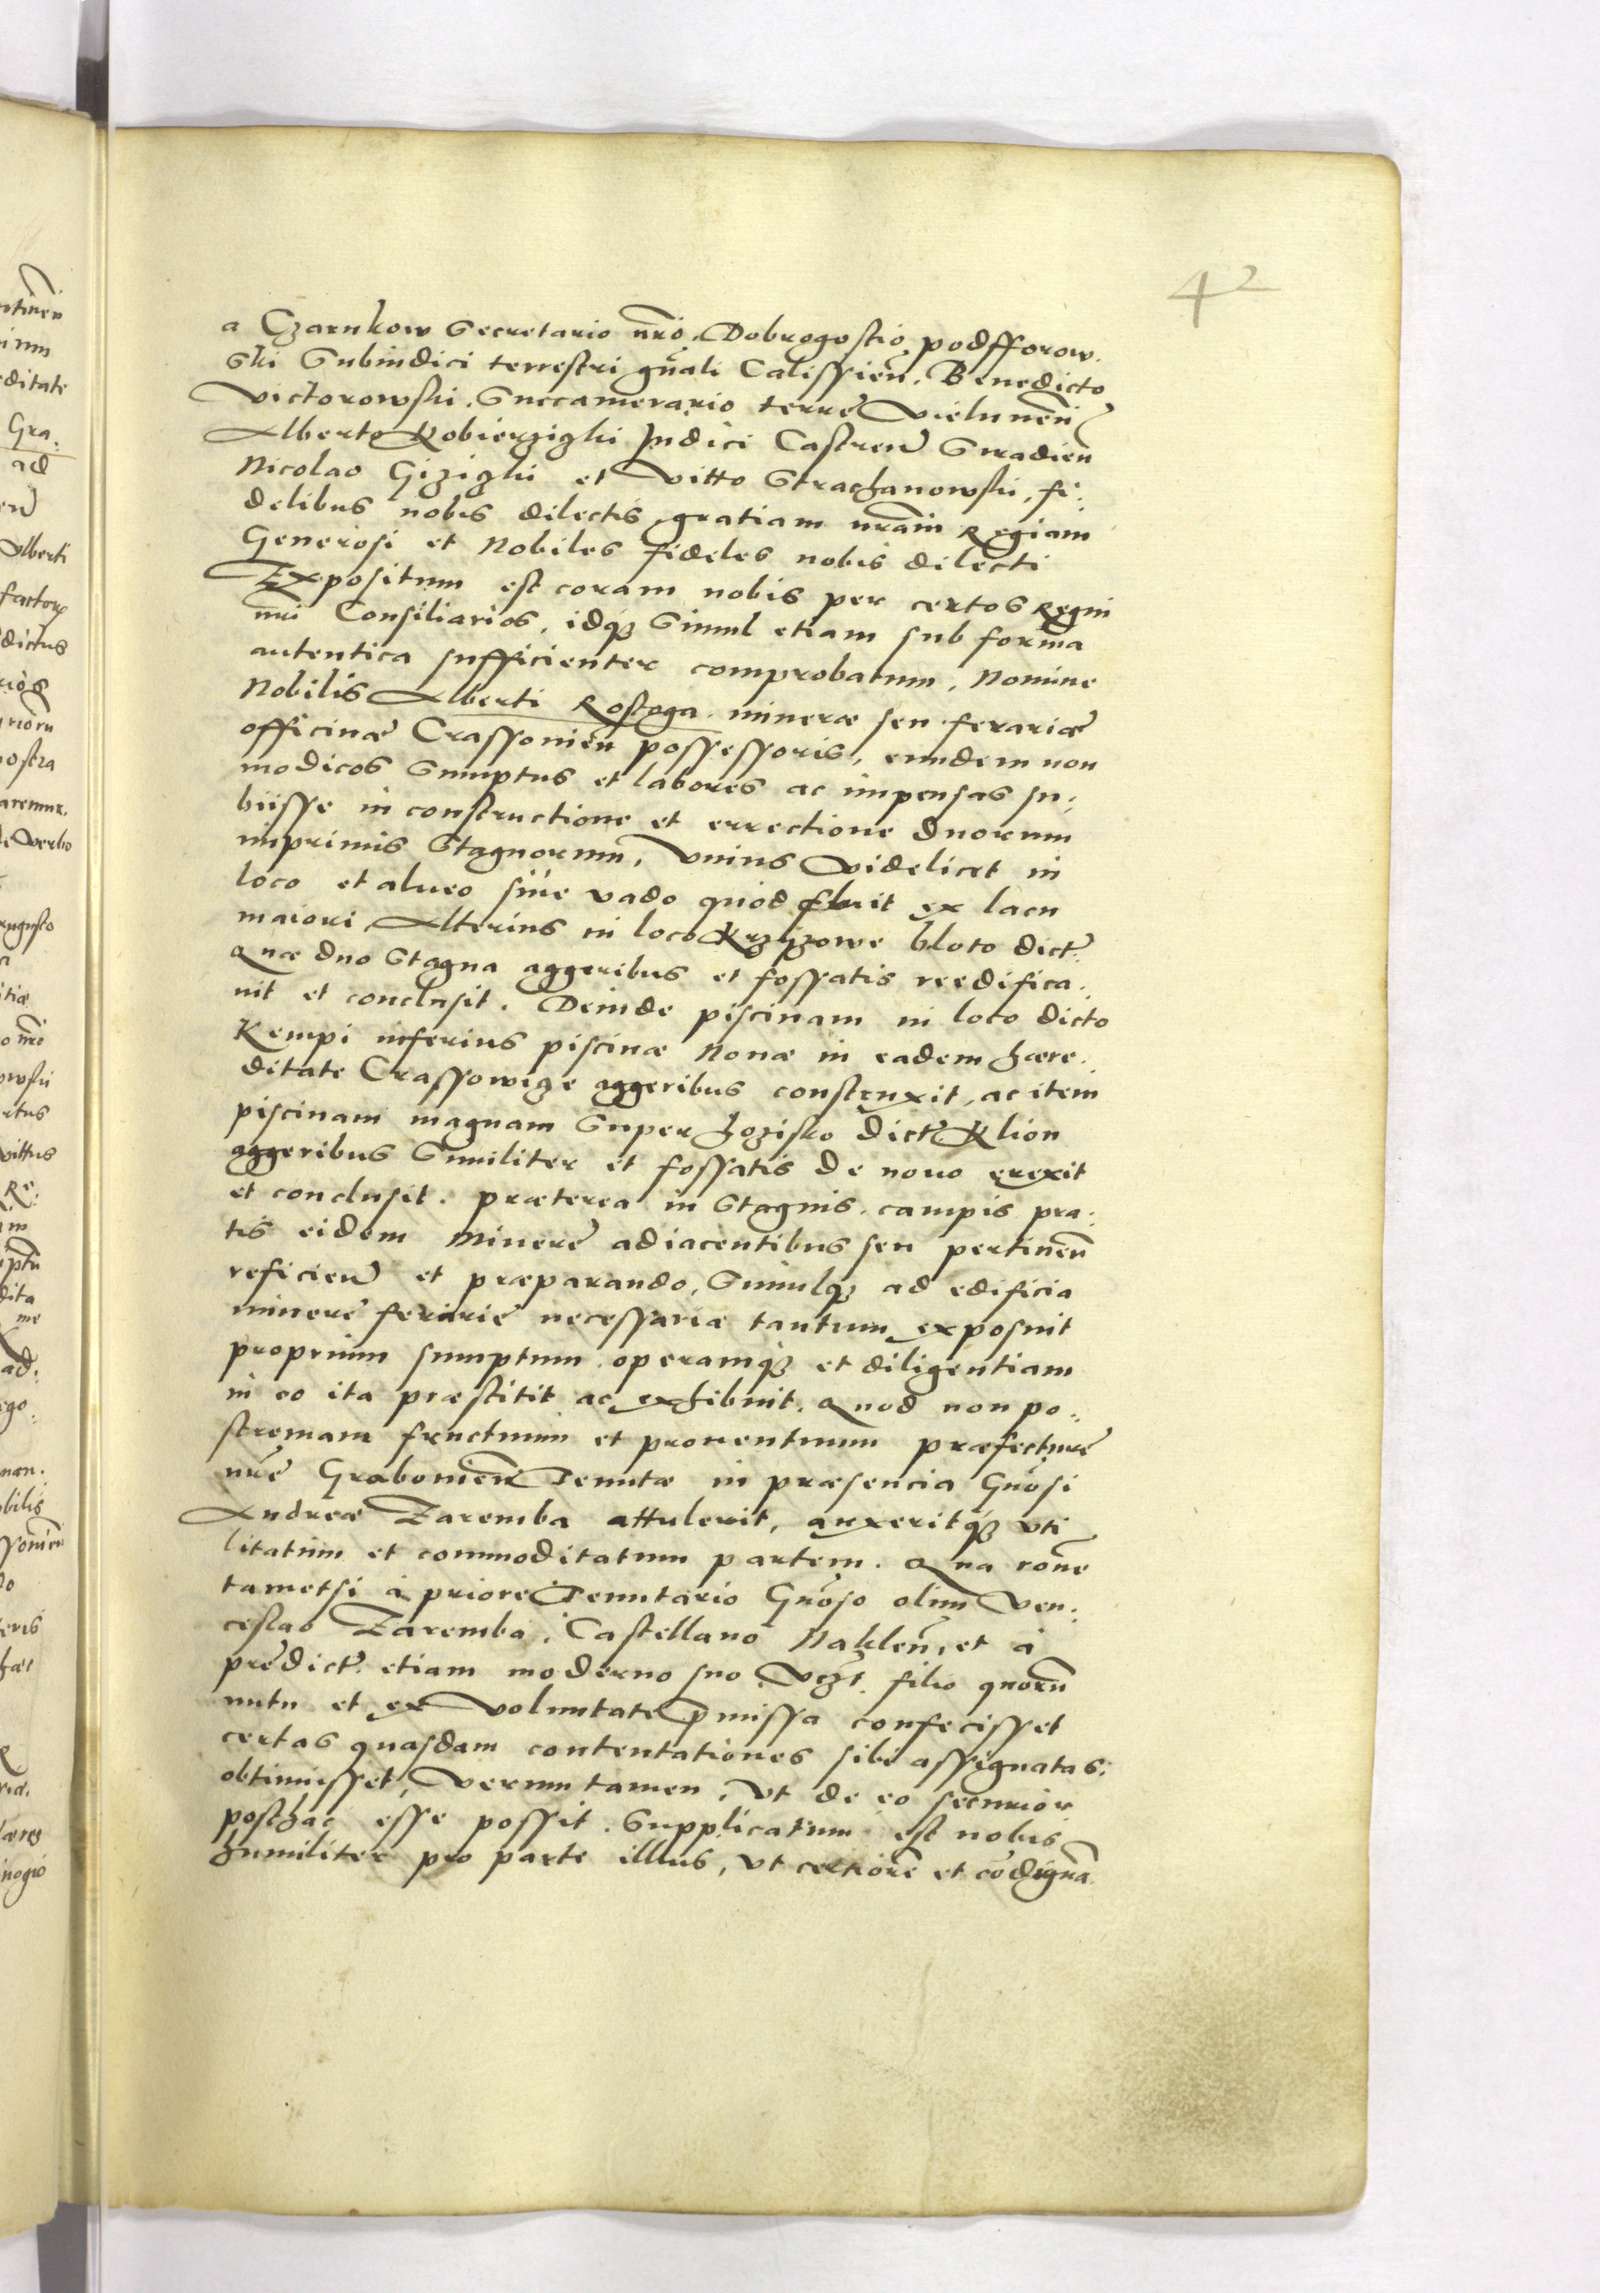 42
a Czarnkow Secretario nro, Dobrogostio podfforow.
ski Subiudici terrestri gnali Calissien, Benedicto
Victorowski Succamerario terre Vielunen
Alberto Kobierziczki Iudici Castren Siradien
Nicolao Giziczki et Vitto Strachanowski, fi:
delibus nobis dilectis, gratiam nram Regiam
Generosi et Nobiles fideles nobis dilecti
Expositum est coram nobis per certos Regni
nri Consiliarios, idq3 Simul etiam sub forma
autentica sufficienter comprobatum, Nomine
Nobilis Alberti Rostoga minere seu ferarie
officinae Crassonien possessoris, eundem non
modicos Sumptus et labores ac impensas su:
biisse in constructione et errectione duorum
inprimis Stagnorum, Vnius Videlicet in
loco et alueo siue vado quod fluit ex lacu
maiori Alterius in loco Krzizowe bloto dict:
Quae duo Stagna aggeribus et fossatis reedifica:
uit et conclusit. Deinde piscinam in loco dicto
Kempi inferius piscinae Nonae in eadem haere:
ditate Crassowicze aggeribus construxit, ac item
piscinam magnam Super hozisko dict Klion
aggeribus Similiter et fossatis de nouo erexit
et conclusit. praeterea in Stagnis, campis pra:
tis eidem Minere adiacentibus seu pertinen
reficien et praeparando, Simulq3 ad edificia
minere ferarie necessaria tantum exposuit
proprium sumptum operamq3 et diligentiam
in eo ita praestitit ac exhibuit. Quod non po:
stremam fructuum et prouentuum praefecture
nre Grabouien Tenutae in praesencia Gnosi
Andreae Zaremba attulerit, auxeritq3 vti
litatum et commoditatum partem. Qua rone
tametsi à priore Tenutario Gnoso olim Ven:
ceslao Zaremba, Castellano Naklen, et à
predict etiam moderno suo Vczt. filio quoru
nutu et ex Voluntate pmissa confecisset
certas quasdam contentationes sibi assignatas:
obtinuisset, Verum tamen, Vt de eo securior
posthac esse possit. Supplicatum est nobis
humiliter pro parte illius, vt certiore et codigna